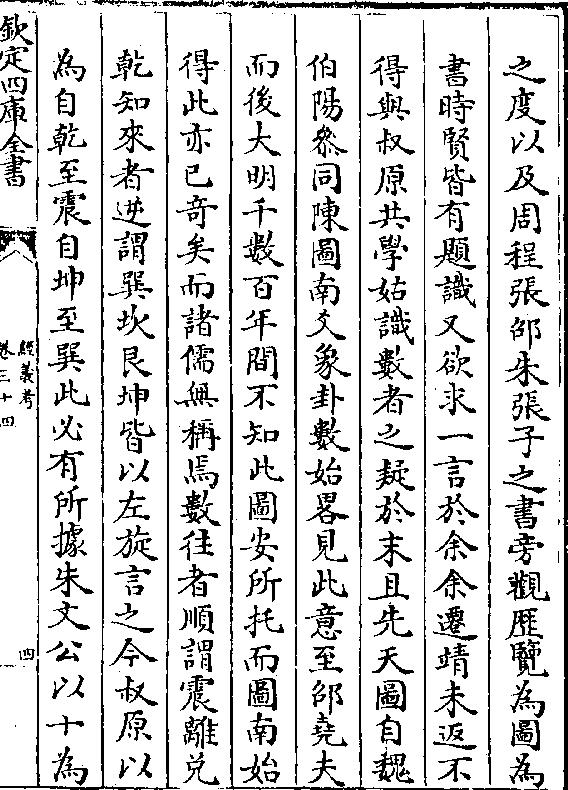 之度以及周程張邵朱張子之書旁觀歴覽為圖為
書時賢皆有題識又欲求一言於余余遷靖未返不
得與叔原共學姑識數者之疑於末且先天圖自魏
伯陽參同陳圖南爻象卦數始畧見此意至邵堯夫
而後大明千數百年間不知此圖安所托而圖南始
得此亦已竒矣而諸儒無稱焉數往者順謂震離兑
乾知來者逆謂巽坎艮坤皆以左旋言之今叔原以
為自乾至震自坤至巽此必有所據朱文公以十為
欽定四庫全書
經義考
卷三十四
四